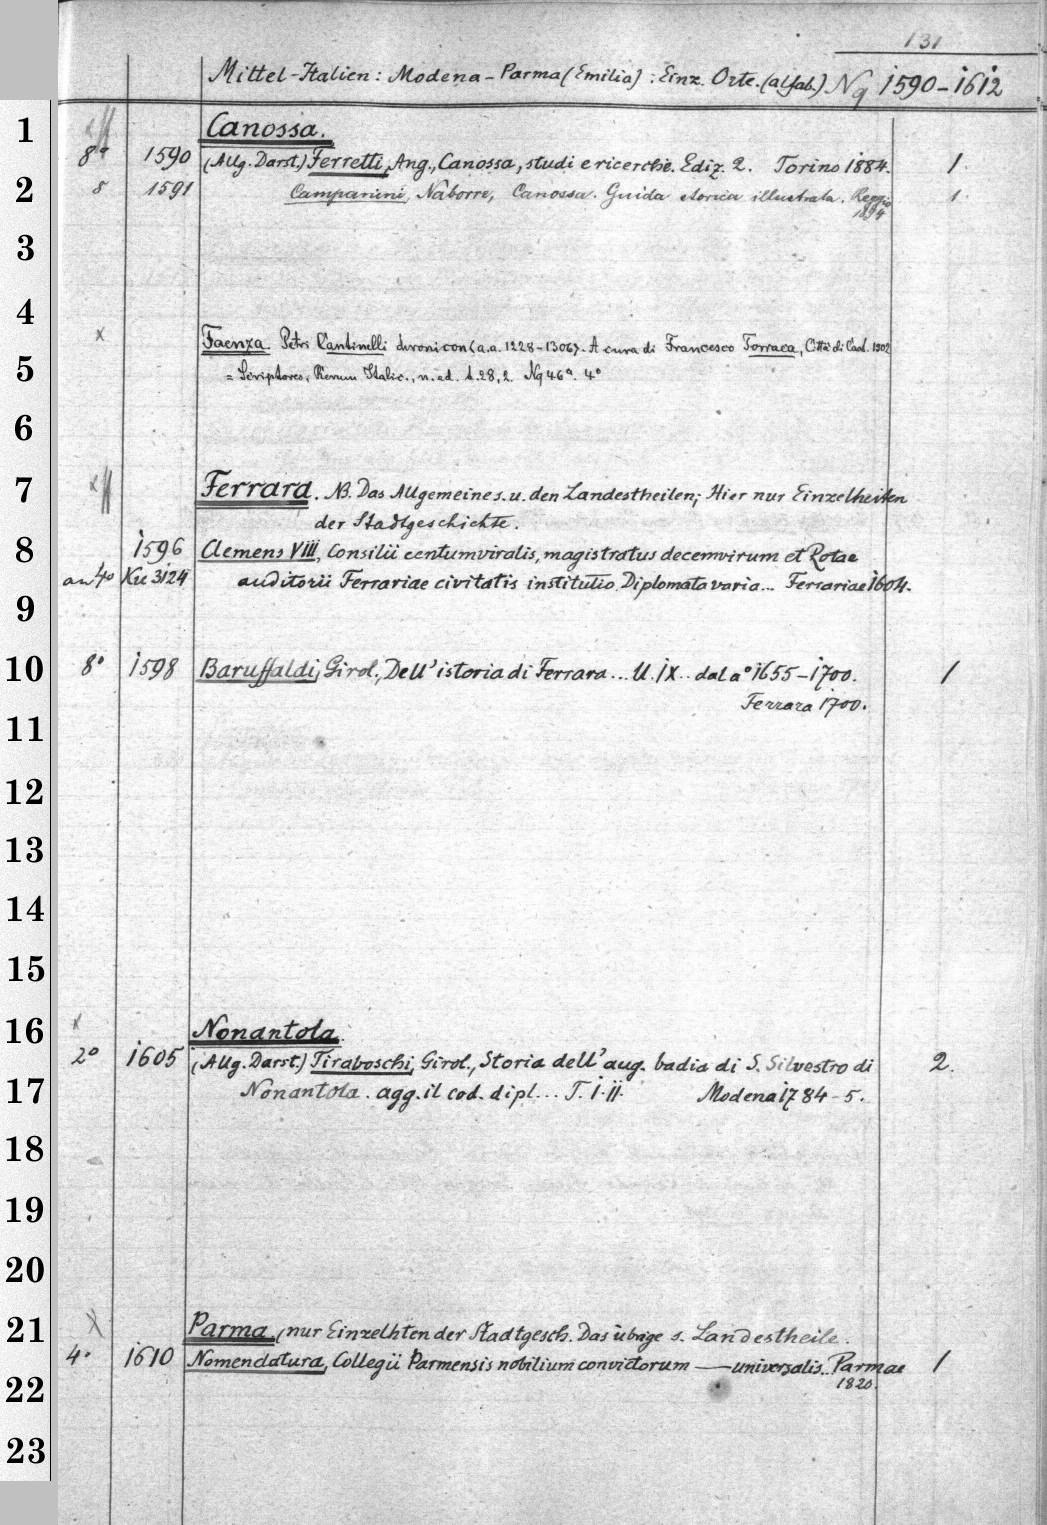 131
Mittel-Italien: Modena - Parma (Emilia): Einz. Orte. (alfab.) Nq 1590-1612
1
Canossa.
8° 1590 (Allg. Darst.) Ferretti, Ang., Canossa, studi e ricerche. Ediz. 2. Torino 1884. 1.
2
8 1591 Campanini, Naborre, Canossa. Guida storica illustrata. Reggio 1.
1894
3
4
x Faenza. Petri Cantinelli chronicon (a.a. 1228-1306). A cura di Francesco Torraca, Città di Cast. 1902
5
= Scriptores, Rerum Italic., n. ed. t. 28, 2. Nq 46a. 4°
6
7
Ferrara. NB. Das Allgemeine s. u. den Landestheilen; Hier nur Einzelheiten
der Stadtgeschichte.
8
1596 Clemens VIII, Consilii centumviralis, magistratus decemvirum et Rotae
an 4° Ku 3124 auditorii Ferrariae civitatis institutio. Diplomata varia... Ferrariae 1604.
9
10
8° 1598 Baruffaldi, Girol., Dell' istoria di Ferrara... ll. IX.. dal a° 1655-1700. 1
Ferrara 1700.
11
12
13
14
15
16
x Nonantola.
2° 1605 (Allg. Darst.) Tiraboschi, Girol., Storia dell' aug. badia di S. Silvestro di 2.
17
Nonantola. agg. il cod. dipl... T. I. II. Modena 1784-5.
18
19
20
21
X Parma, (nur Einzelhten der Stadtgesch. Das übrige s. Landestheile.
4° 1610 Nomendatura, Collegii Parmensis nobilium convictorum — universalis.. Parmae 1
22
1820.
23